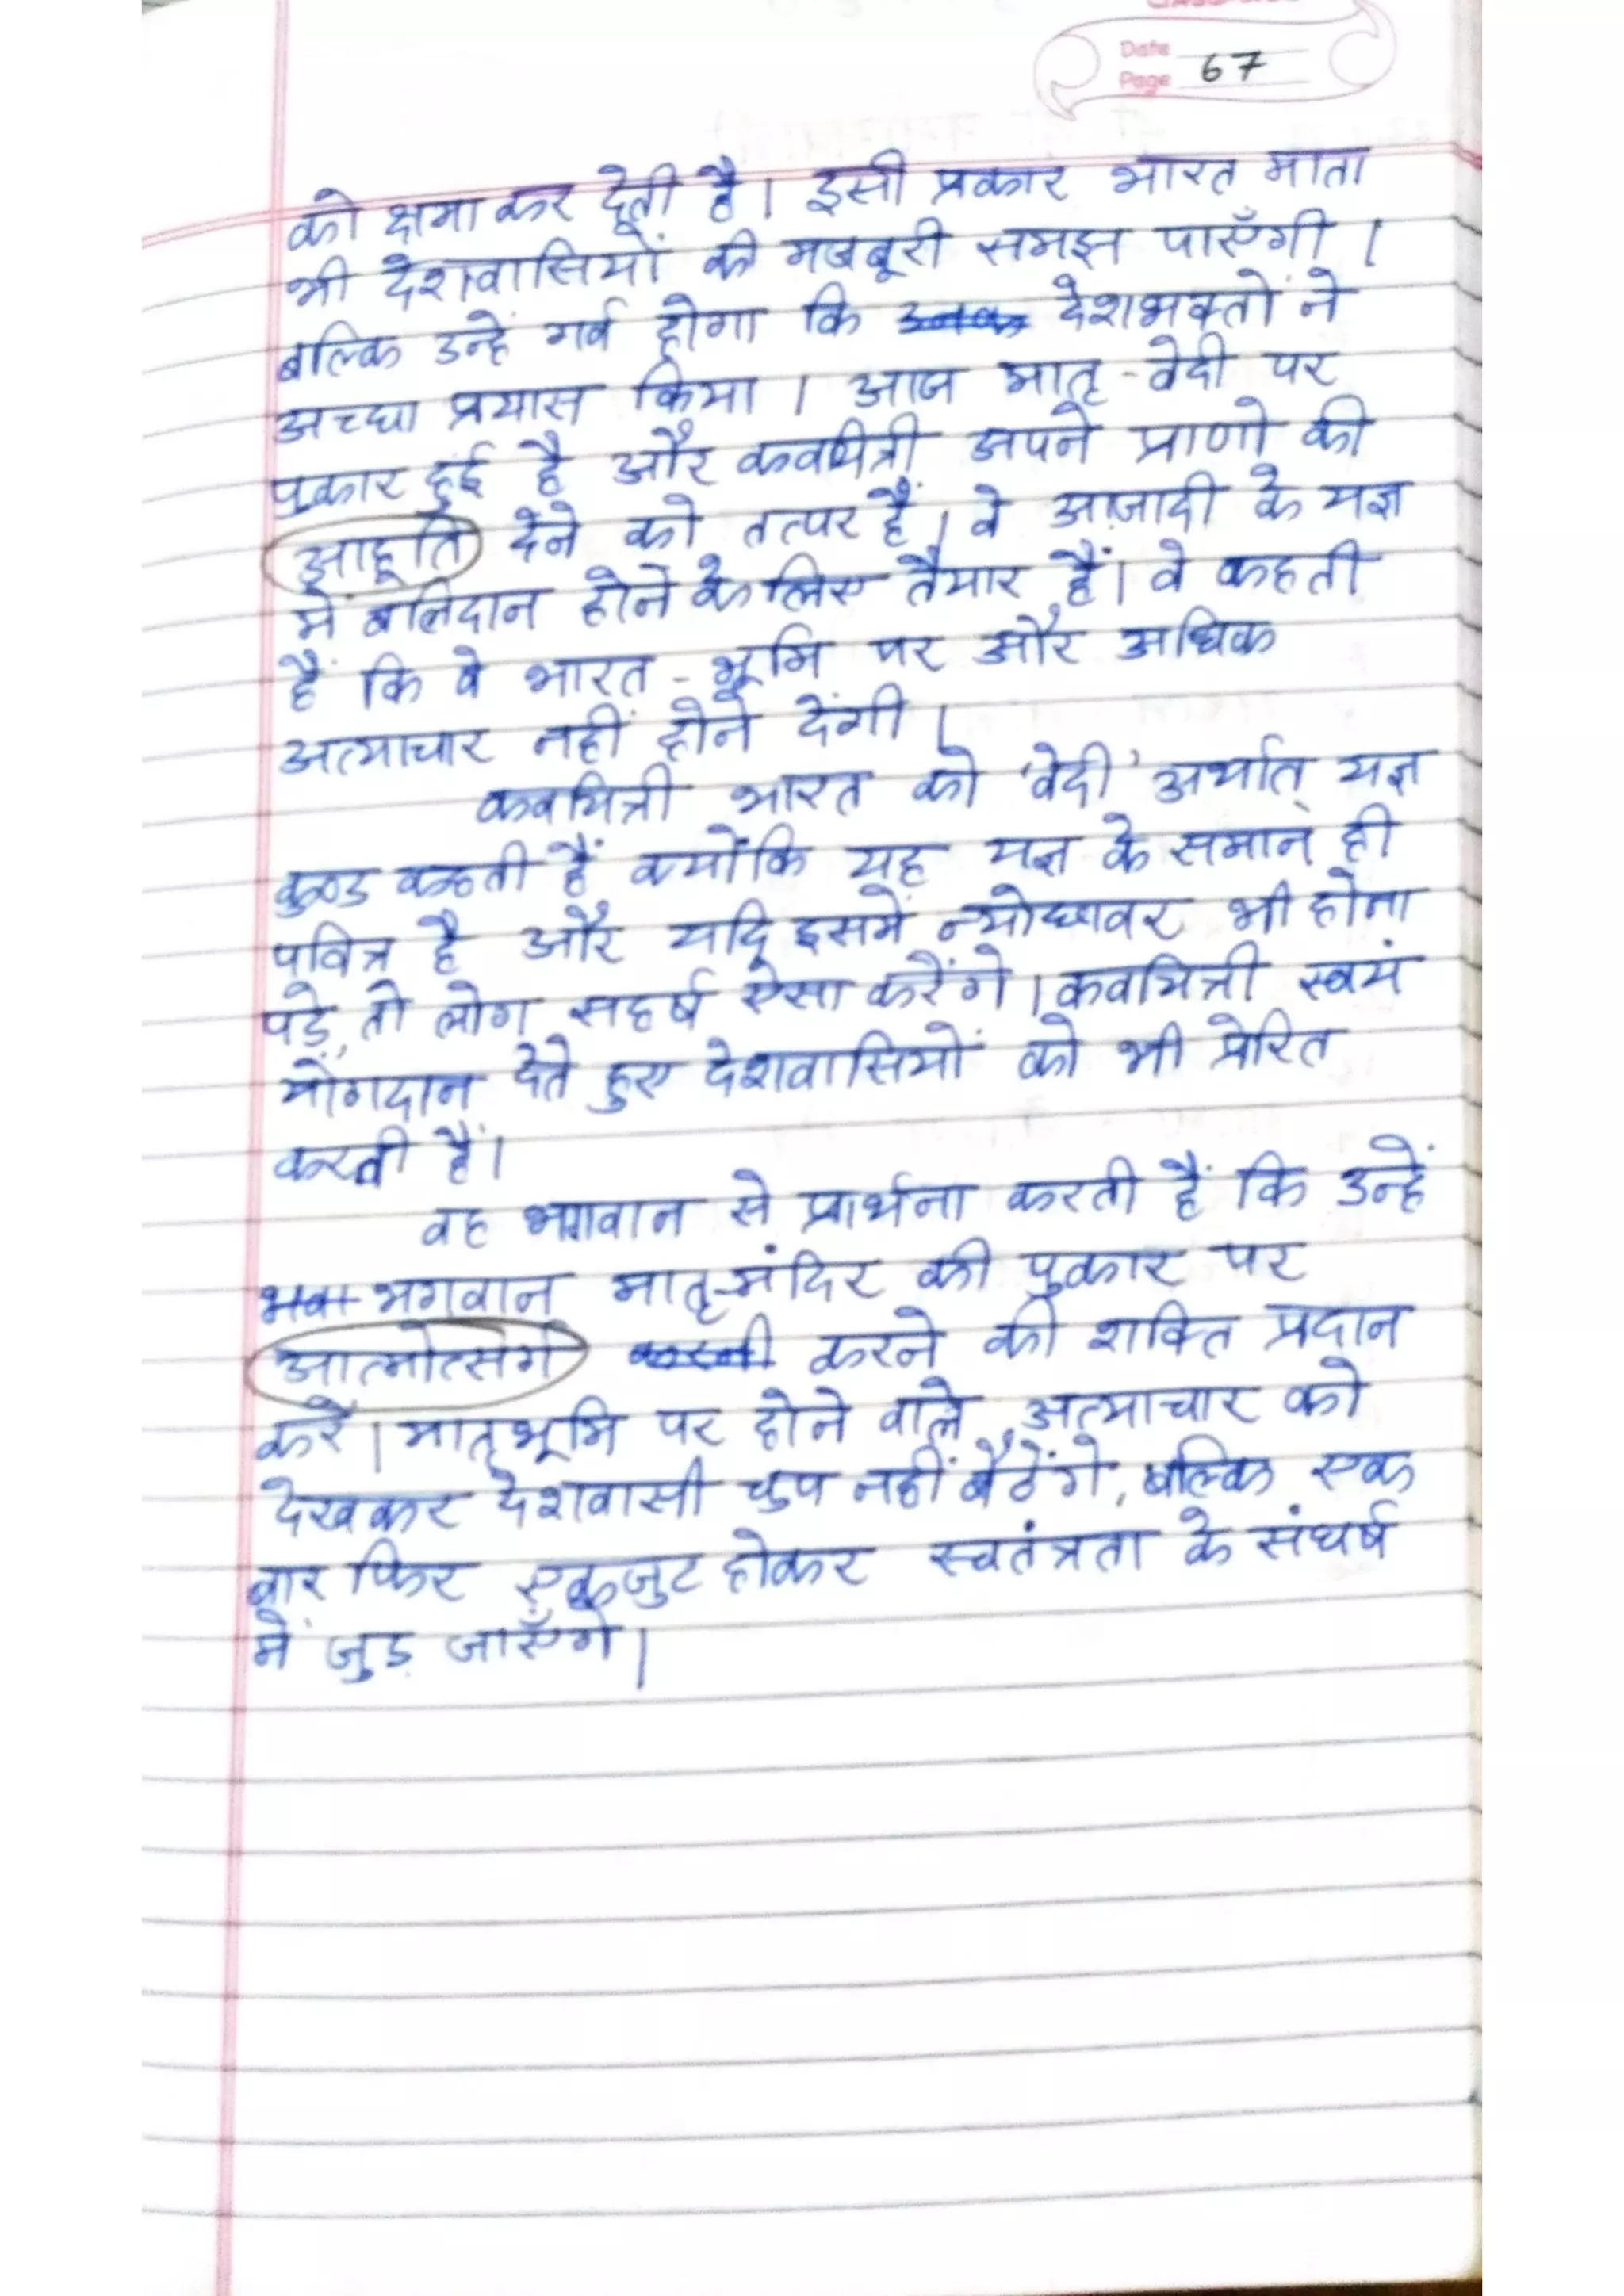 Date
Page 67
को क्षमा कर देती है। इसी प्रकार भारत माता
भी देशवासियों की मजबूरी समझ पाएँगी।
बल्कि उन्हें गर्व होगा कि देशभक्तों ने
अच्छा प्रयास किया। आज मातृ-वेदी पर
पुकार हुई है और कवयित्री अपने प्राणो की
आहूति देने को तत्पर हैं। वे आज़ादी के यज्ञ
में बलिदान होने के लिए तैयार हैं। वे कहती
हैं कि वे भारत-भूमि पर और अधिक
अत्याचार नहीं होने देंगी।
कवयित्री भारत को 'वेदी' अर्थात् यज्ञ
कुण्ड कहती हैं क्योंकि यह यज्ञ के समान ही
पवित्र है और यदि इसमें न्योछावर भी होना
पड़े, तो लोग सहर्ष ऐसा करेंगे। कवयित्री स्वयं
योगदान देते हुए देशवासियों को भी प्रेरित
करती हैं।
वह भगवान से प्रार्थना करती हैं कि उन्हें
भगवान मातृ-मंदिर की पुकार पर
आत्मोत्सर्ग करने की शक्ति प्रदान
करें। मातृभूमि पर होने वाले अत्याचार को
देखकर देशवासी चुप नहीं बैठेंगे, बल्कि एक
बार फिर एकजुट होकर स्वतंत्रता के संघर्ष
में जुड़ जाएँगे।